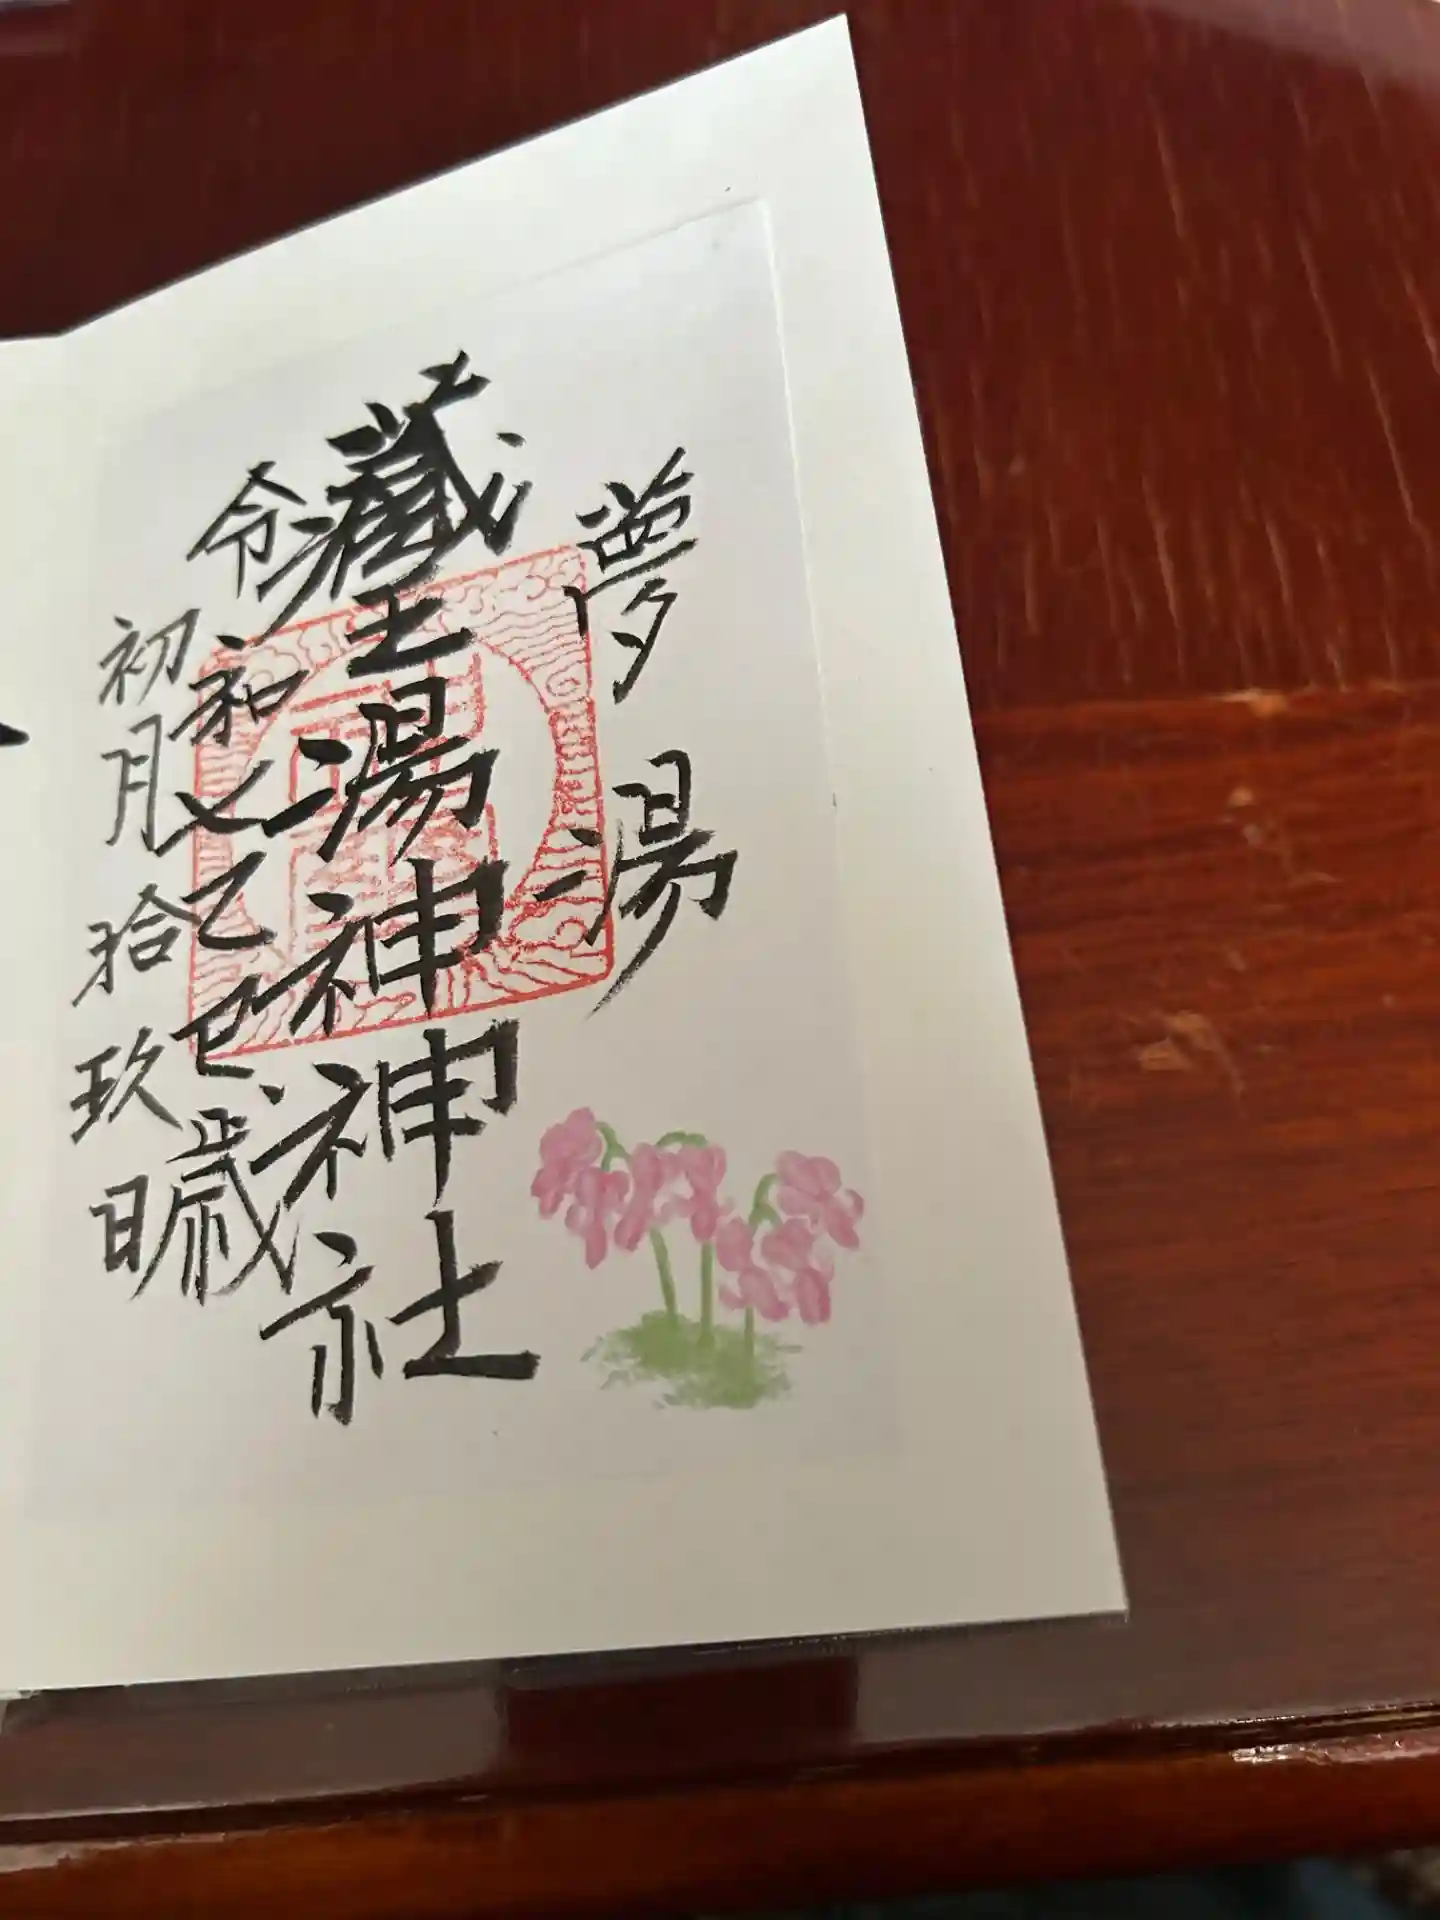 夢湯
藏王湯神神社
令和七乙巳歳
初月拾玖日